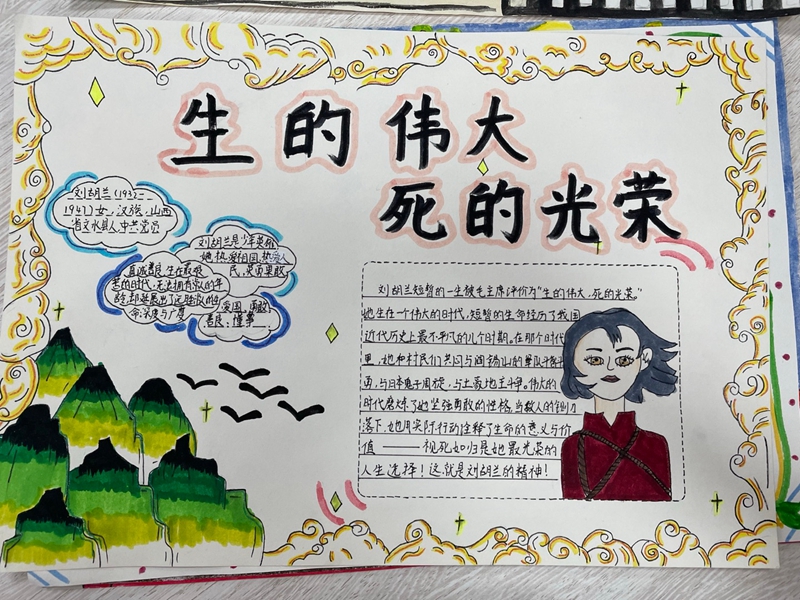 生的伟大
死的光荣
刘胡兰（1932-
1947）女，汉族，山西
省文水县人 中共党员
刘胡兰是少年英雄
她热爱祖国，热爱人
民，英勇果敢
真诚善良，生在最艰
苦的时代，无法拥有
爱国、勇敢、
善良、懂事
刘胡兰短暂的一生被毛主席评价为“生的伟大，死的光荣。”
她生在一个伟大的时代，短暂的生命经历了我国
近代历史上最不平凡的几个时期。在那个时代
里，她和村民们共同与阎锡山的军队
与日本鬼子周旋，与土豪地主斗争。伟大的
时代磨炼了她坚强勇敢的性格，当敌人的铡刀
落下，她用实际行动诠释了生命的意义与价
值——视死如归是她最光荣的
人生选择！这就是刘胡兰的精神！